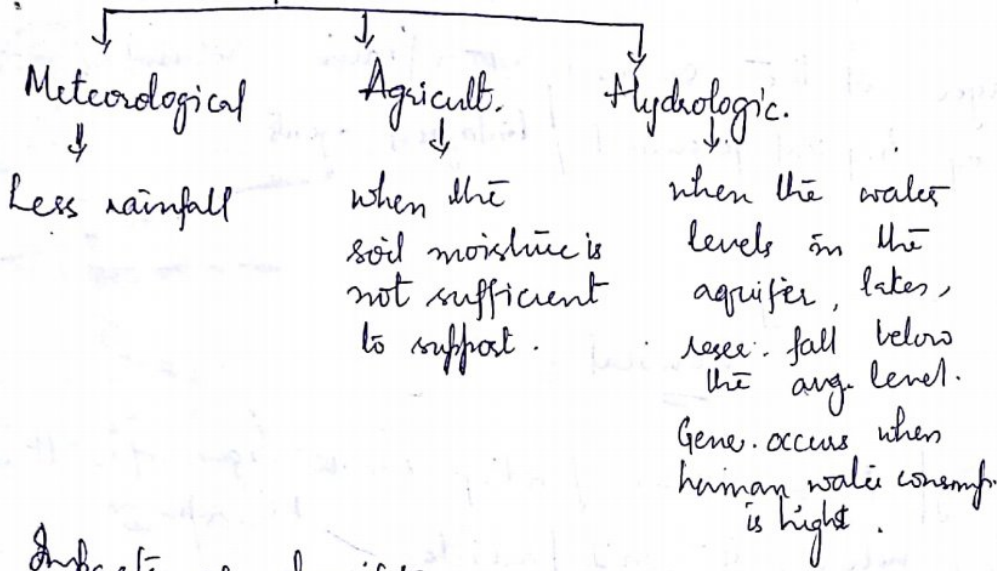 Meteorological
Less rainfall
Agricult.
when the
soil moisture is
not sufficient
to support.
Hydrologic.
when the water
levels in the
aquifer, lakes,
reser. fall below
the avg. level.
Gene. occurs when
human water consmp.
is hight.